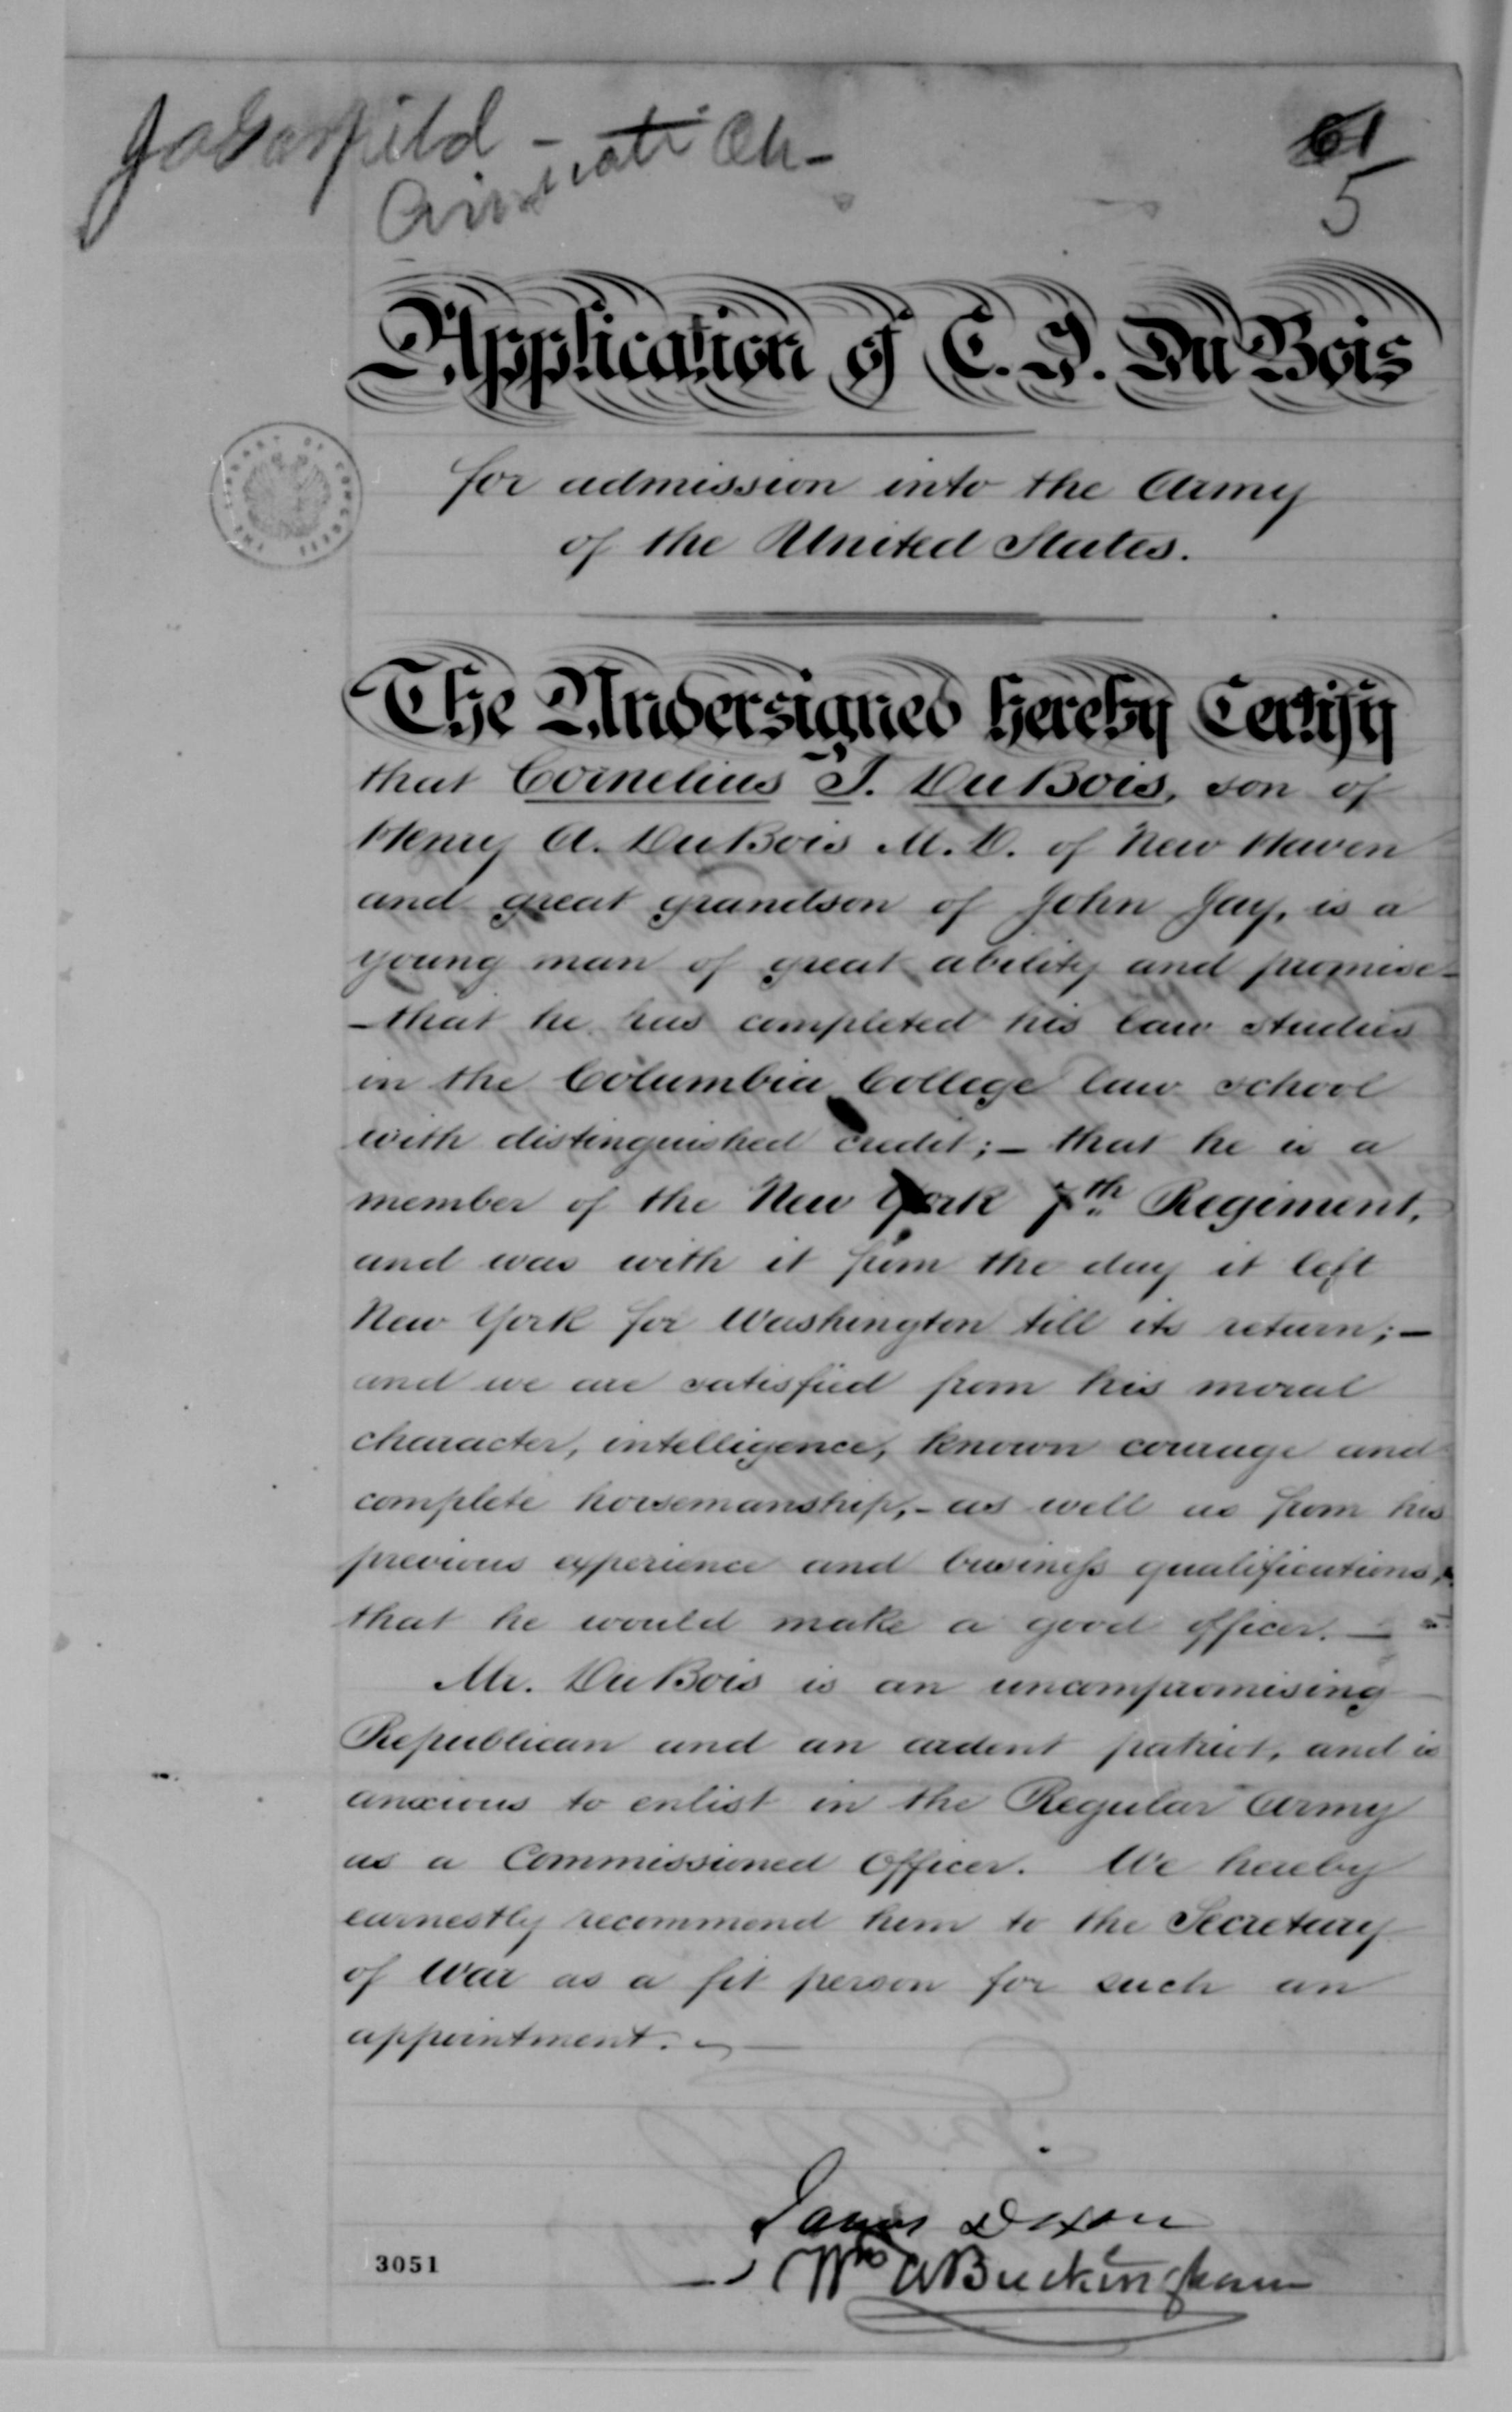 61
5
Application of C. J. Du Bois
for admission into the Army
of the United States.
THE LIBRARY OF CONGRESS
The Undersigned hereby Certify
that Cornelius J. DuBois, son of
Henry A. DuBois M.D. of New Haven
and great grandson of John Jay, is a
young man of great ability and promise-
-that he has completed his law studies
in the Columbia College law school
with distinguished credit;- that he is a
member of the New York 7th Regiment,
and was with it from the day it left
New York for Washington till its return;-
and we are satisfied from his moral
character, intelligence, known courage and
complete horsemanship,- as well as from his
previous experience and business qualifications,
that he would make a good officer.-
Mr. DuBois is an uncompromising
Republican and an ardent patriot, and is
anxious to enlist in the Regular Army
as a Commissioned Officer. We hereby
earnestly recommend him to the Secretary
of War as a fit person for such an
appointment.-
James Dixon
Wm A Buckingham
3051